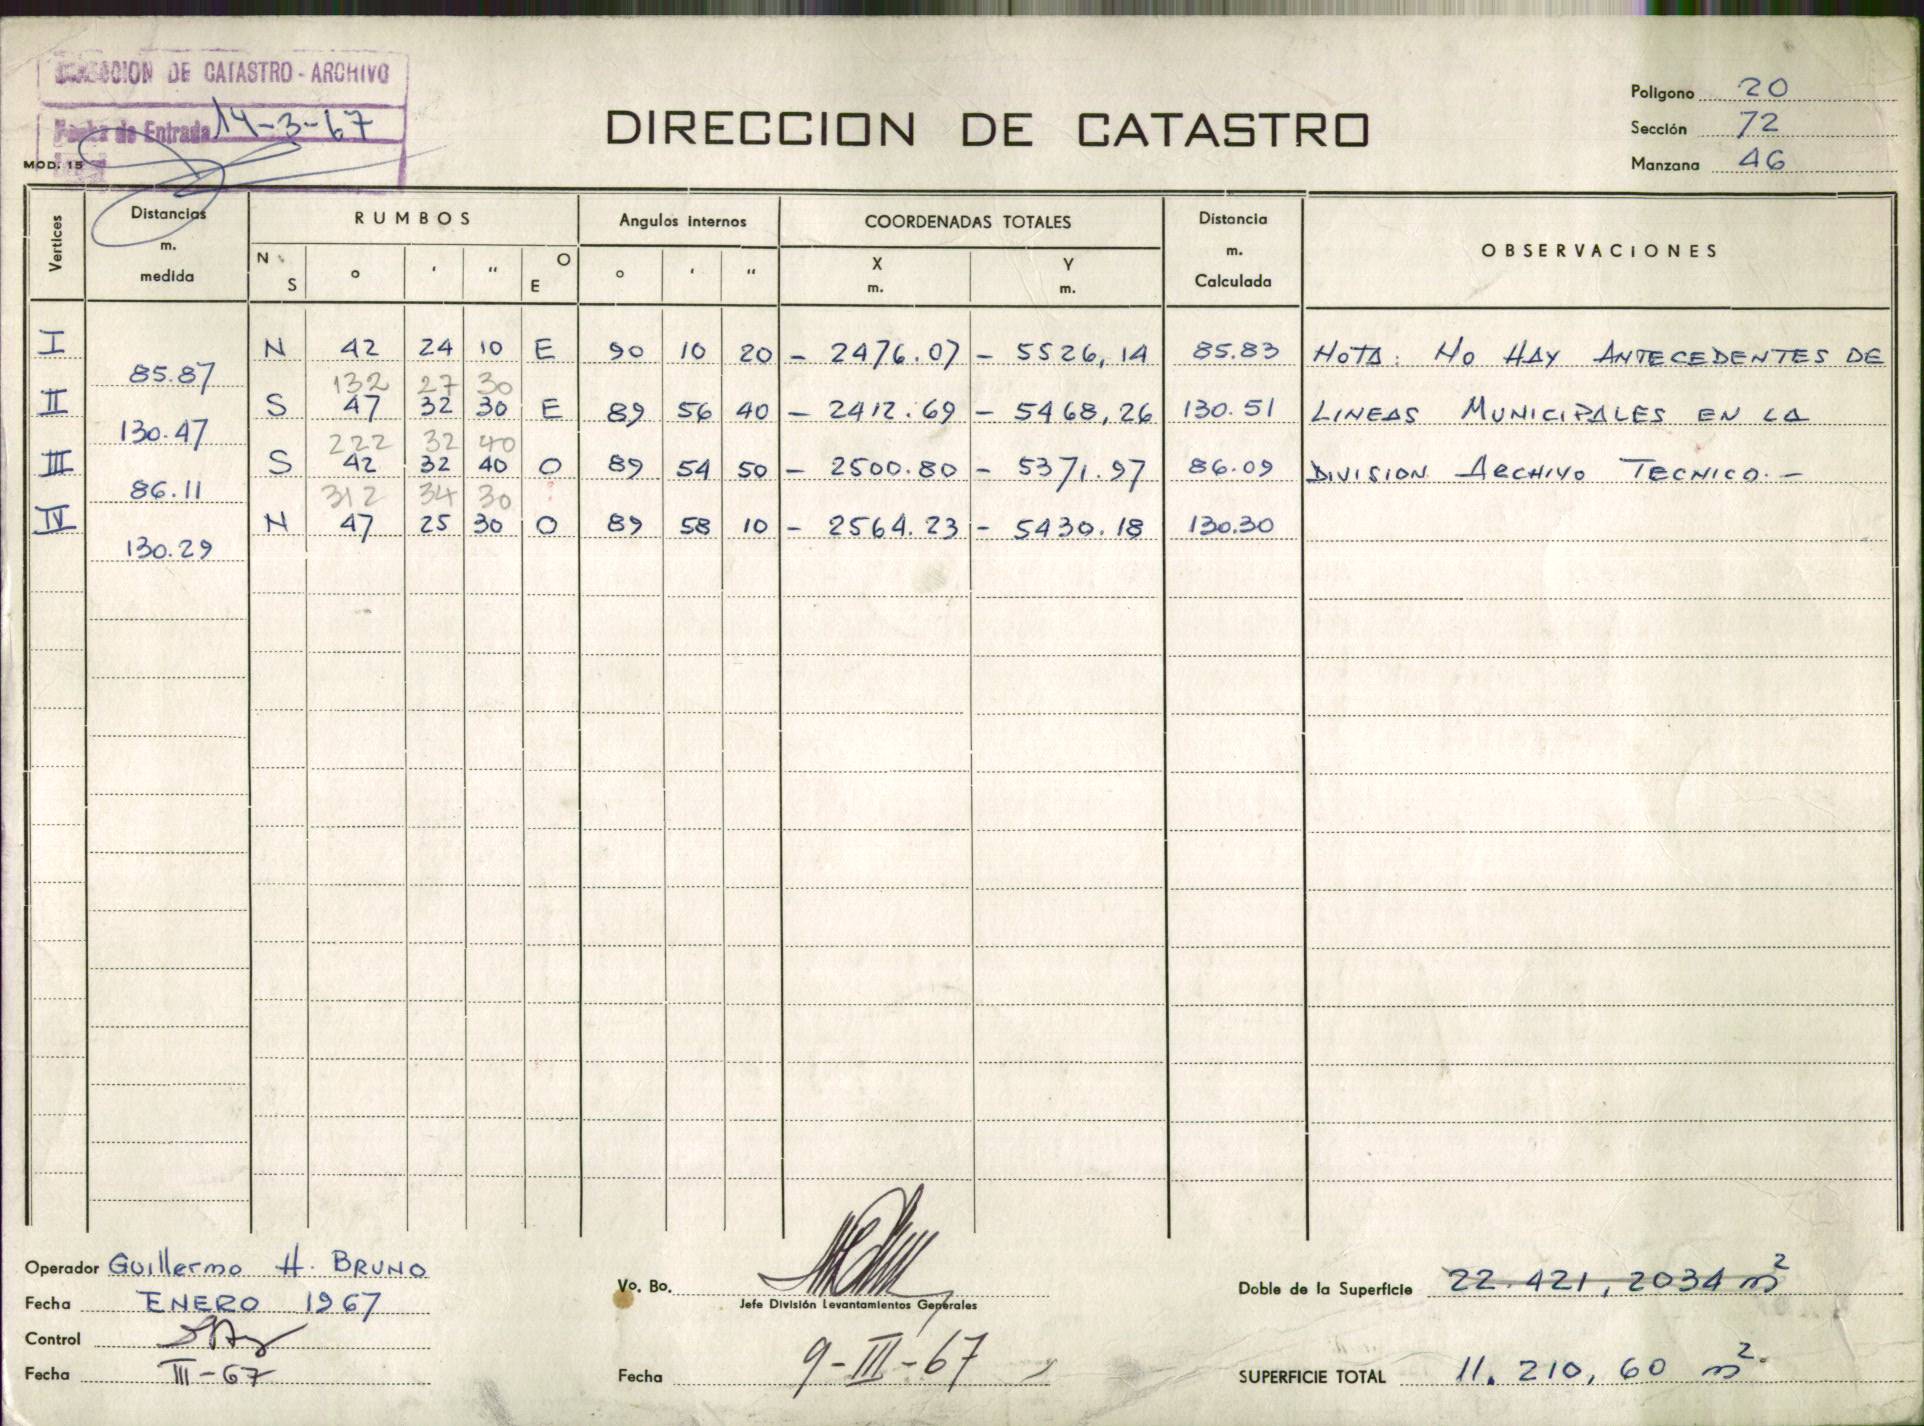 DIRECCION DE CATASTRO - ARCHIVO
Fecha de Entrada 14-3-67
MOD. 15
DIRECCION DE CATASTRO
Poligono 20
Sección 72
Manzana 46
Vertices
Distancias m. medida
RUMBOS
N S ° ' " O E
Angulos internos
° ' "
COORDENADAS TOTALES
X m. Y m.
Distancia m. Calculada
OBSERVACIONES
I N 42 24 10 E 90 10 20 - 2476.07 - 5526,14 85.83 NOTA: NO HAY ANTECEDENTES DE
85.87 132 27 30
II S 47 32 30 E 89 56 40 - 2412.69 - 5468,26 130.51 LINEAS MUNICIPALES EN LA
130.47 222 32 40
III S 42 32 40 O 89 54 50 - 2500.80 - 5371.97 86.09 DIVISION ARCHIVO TECNICO.-
86.11 312 34 30
IV N 47 25 30 O 89 58 10 - 2564.23 - 5430.18 130.30
130.29
Operador Guillermo H. BRUNO
Fecha ENERO 1967
Control
Fecha III-67
Vo. Bo.
Jefe División Levantamientos Generales
Fecha 9-III-67
Doble de la Superficie 22.421,2034 m2
SUPERFICIE TOTAL 11.210,60 m2.